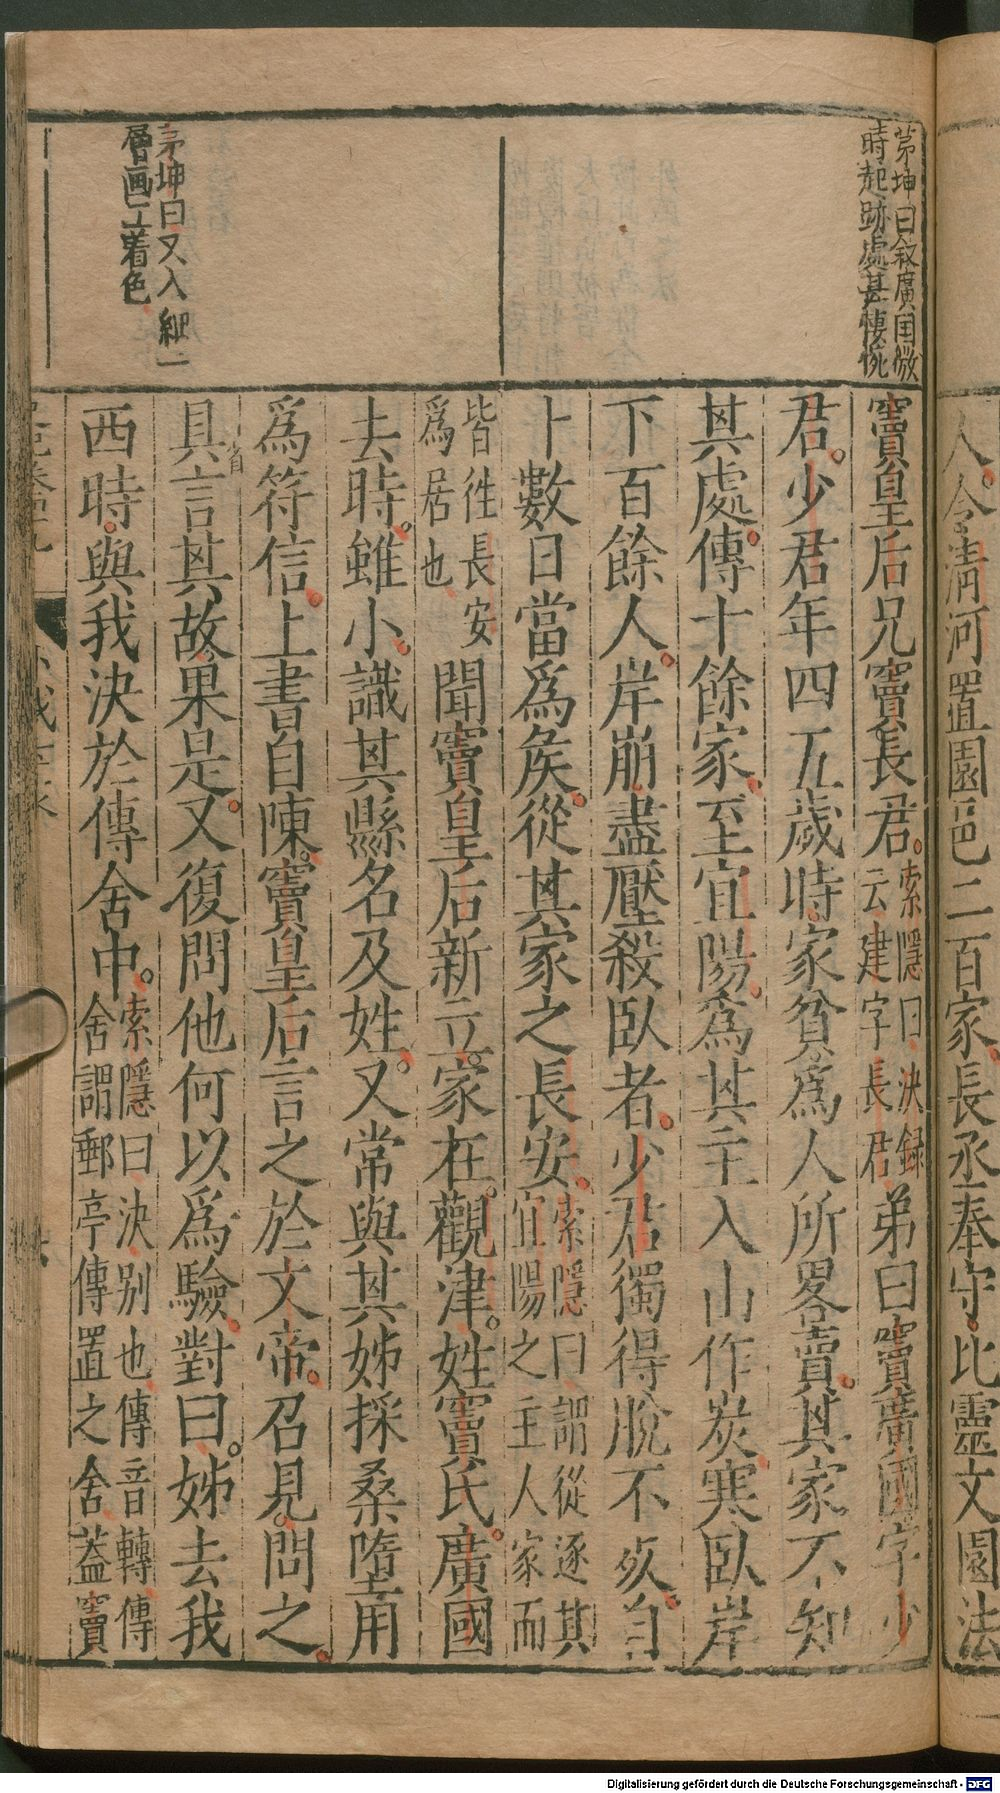 人令清河置園邑二百家長丞奉守比靈文園法
茅坤曰叙廣囯微
時起跡處甚悽惋
竇皇后兄竇長君索隱曰决録
云建字長君弟曰竇廣國字少
君少君年四五歲時家貧爲人所畧賣其家不知
其處傳十餘家至宜陽爲其主入山作炭寒臥岸
下百餘人岸崩盡壓殺臥者少君獨得脫不死自
卜數日當爲矦從其家之長安索隱曰謂從逐其
宜陽之主人家而
皆徃長安
爲居也聞竇皇后新立家在觀津姓竇氏廣國
去時雖小識其縣名及姓又常與其姊採桑墮用
爲符信上書自陳竇皇后言之於文帝召見問之
具言其故果是又復問他何以爲驗對曰姊去我
省
茅坤曰又入細一
層画工着色
西時與我決於傳舍中索隱曰决别也傳音轉傳
舍謂郵亭傳置之舍蓋竇
Digitalisierung gefördert durch die Deutsche Forschungsgemeinschaft - DFG